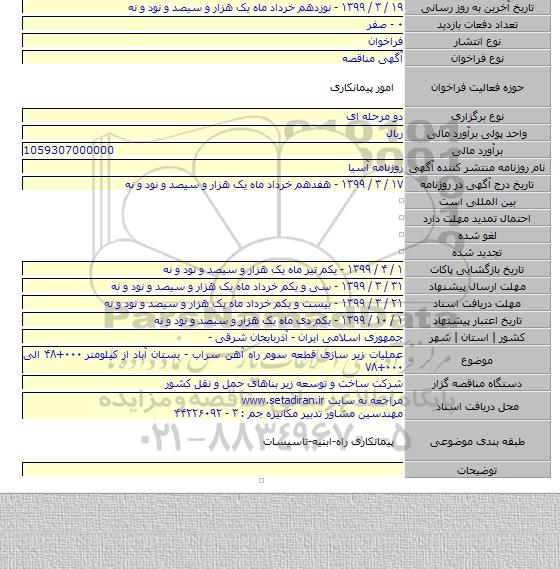 تاریخ آخرین به روز رسانی ۱۹ / ۳ / ۱۳۹۹ - نوزدهم خرداد ماه یک هزار و سیصد و نود و نه
تعداد دفعات بازدید ۰ - صفر
نوع انتشار فراخوان
نوع فراخوان آگهی مناقصه
حوزه فعالیت فراخوان امور پیمانکاری
نوع برگزاری دو مرحله ای
واحد پولی برآورد مالی ریال
برآورد مالی 1059307000000
نام روزنامه منتشر کننده آگهی روزنامه آسیا
تاریخ درج آگهی در روزنامه ۱۷ / ۳ / ۱۳۹۹ - هفدهم خرداد ماه یک هزار و سیصد و نود و نه
بین المللی است
احتمال تمدید مهلت دارد
لغو شده
تجدید شده
تاریخ بازگشایی پاکات ۱ / ۴ / ۱۳۹۹ - یکم تیر ماه یک هزار و سیصد و نود و نه
مهلت ارسال پیشنهاد ۳۱ / ۳ / ۱۳۹۹ - سی و یکم خرداد ماه یک هزار و سیصد و نود و نه
مهلت دریافت اسناد ۲۱ / ۳ / ۱۳۹۹ - بیست و یکم خرداد ماه یک هزار و سیصد و نود و نه
تاریخ اعتبار پیشنهاد ۱ / ۱۰ / ۱۳۹۹ - یکم دی ماه یک هزار و سیصد و نود و نه
کشور | استان | شهر جمهوری اسلامی ایران - آذربایجان شرقی -
موضوع عملیات زیر سازی قطعه سوم راه آهن سراب - بستان آباد از کیلومتر ۰۰۰+۴۸ الی
۰۰۰+۷۸
دستگاه مناقصه گزار شرکت ساخت و توسعه زیر بناهای حمل و نقل کشور
محل دریافت اسناد مراجعه به سایت www.setadiran.ir
مهندسین مشاور تدبیر مکانیزه جم : ۳ - ۴۴۲۲۶۰۹۲
طبقه بندی موضوعی پیمانکاری راه-ابنیه-تاسیسات
توضیحات
۰۲۱-۸۸۳۴۹۶۷۰-۵